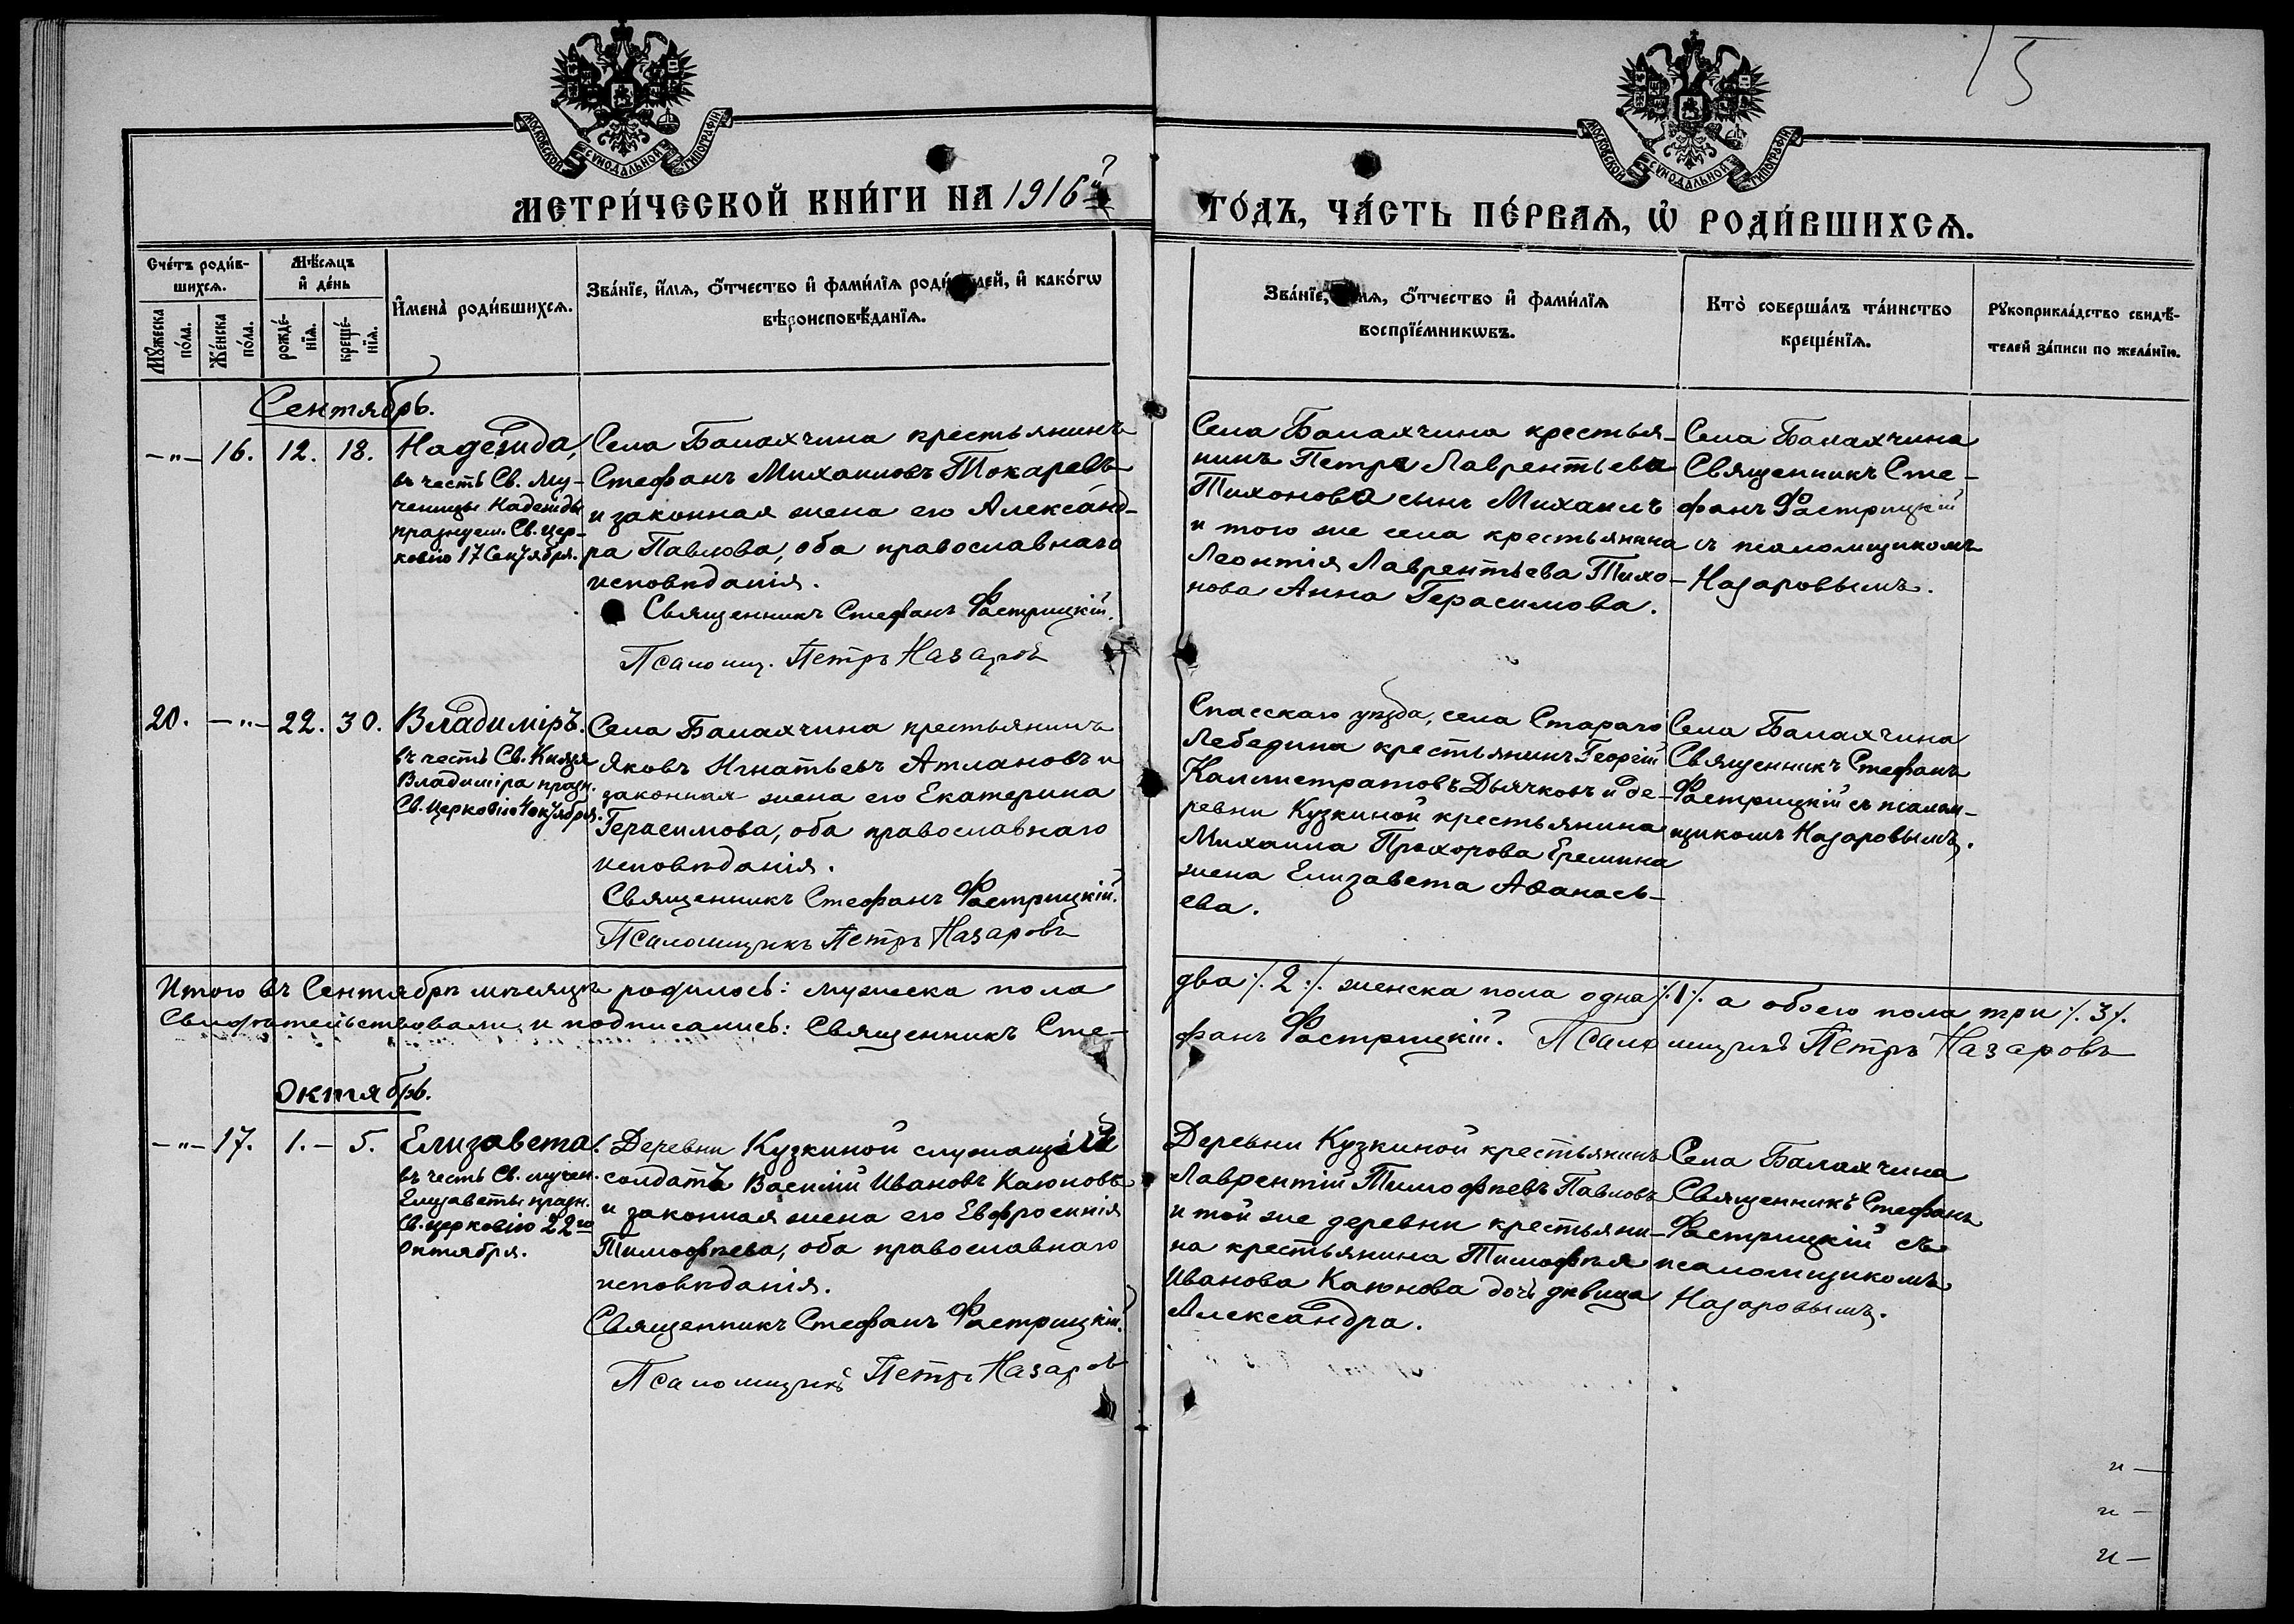 15
МОСКОВСКОЙ СУНОДАЛЬНОЙ ТИПОГРАФІИ
МОСКОВСКОЙ СУНОДАЛЬНОЙ ТИПОГРАФІИ
МЕТРИ́ЧЕСКОЙ КНИ́ГИ НА 1916й
ГО́ДЪ, ЧА́СТЬ ПЕ́РВАѦ, Ѽ РОДИ́ВШИХСѦ.
Сче́тъ роди́в-
шихсѧ.
Мѣ́сѧцъ
и҆ де́нь
Мꙋ́жеска
по́ла.
Же́нска
по́ла.
рожде́-
нїѧ.
креще́-
нїѧ.
И҆мена̀ роди́вшихсѧ.
Зва́нїе, и҆́мѧ, ѻ҆́тчество и҆ фами́лїѧ роди́телей, и҆ како́гѡ
вѣроисповѣ́данїѧ.
Зва́нїе, и҆́мѧ, ѻ҆́тчество и҆ фами́лїѧ
воспрїе́мникѡвъ.
Кто̀ соверша́лъ та́инство
креще́нїѧ.
Рꙋкоприкла́дство свидѣ́-
телей за́писи по жела́нїю.
Сентябрь.
–"– 16. 12. 18.
Надежда,
въ честь Св. му-
ченицы Надежды
празднуем. Св. цер-
ковію 17 Сентября.
Села Балахчина крестьянинъ
Стефанъ Михаиловъ Токаревъ
и законная жена его Александ-
ра Павлова, оба православнаго
исповѣданія.
Священникъ Стефанъ Фастрицкій.
Псаломщ. Петръ Назаровъ
Села Балахчина крестья-
нинъ Петра Лаврентьева
Тихонова сынъ Михаилъ
и того же села крестьянина
Леонтія Лаврентьева Тихо-
нова Анна Герасимова.
Села Балахчина
Священникъ Сте-
фанъ Фастрицкій
съ псаломщикомъ
Назаровымъ.
20. –"– 22. 30.
Владиміръ.
въ честь Св. Князя
Владиміра праздн.
Св. Церковію 4 октября.
Села Балахчина крестьянинъ
Яковъ Игнатьевъ Атлановъ и
законная жена его Екатерина
Герасимова, оба православнаго
исповѣданія.
Священникъ Стефанъ Фастрицкій.
Псаломщикъ Петръ Назаровъ
Спасскаго уѣзда, села Стараго
Лебедина крестьянинъ Георгій
Каллистратовъ Дьячковъ и де-
ревни Кузкиной крестьянина
Михаила Прохорова Еремина
жена Елизавета Аѳанась-
ева.
Села Балахчина
Священникъ Стефанъ
Фастрицкій съ псалом-
щикомъ Назаровымъ.
Итого въ Сентябрѣ мѣсяцѣ родилось: мужеска пола
два /. 2 ./. женска пола одна /. 1 /. а обоего пола три /. 3 /.
Свидѣтельствовали и подписались: Священникъ Сте-
фанъ Фастрицкій. Псаломщикъ Петръ Назаровъ
Октябрь.
–"– 17. 1. – 5.
Елизавета.
въ честь Св. мучен.
Елизаветы праздн.
Св. церковію 22го
Октября.
Деревни Кузкиной служащій
солдатъ Василій Ивановъ Каюновъ
и законная жена его Евфросинія
Тимофѣева, оба православнаго
исповѣданія.
Священникъ Стефанъ Фастрицкій.
Псаломщикъ Петръ Назаровъ
Деревни Кузкиной крестьянинъ
Лаврентій Тимофѣевъ Павловъ
и той же деревни крестьяни-
на крестьянина Тимофѣя
Иванова Каюнова дочь дѣвица
Александра.
Села Балахчина
Священникъ Стефанъ
Фастрицкій съ
псаломщикомъ
Назаровымъ.
и –
и –
и –